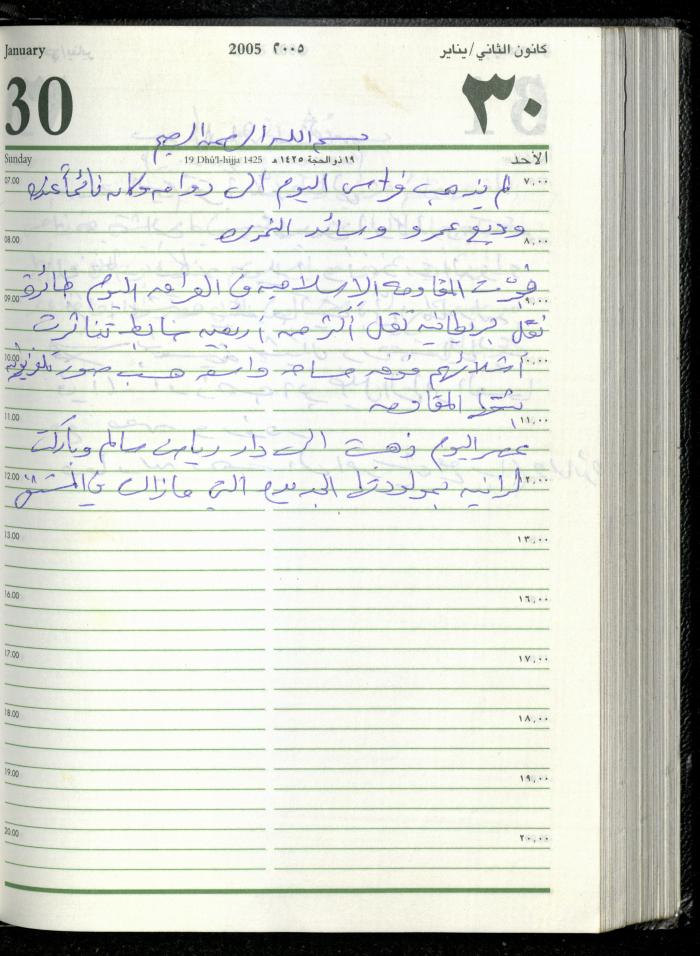 January 2005 ٢٠٠٥ كانون الثاني/يناير
30 ٣٠
بسم الله الرحمن الرحيم
Sunday 19 Dhû'l-hijja 1425 ١٩ ذو الحجة ١٤٢٥ هـ الأحد
07.00 ٧,٠٠
لم يذهب فراس اليوم الى دوامه وكان نائماً عنده
وديع عمرو وسائد النمرى
08.00 ٨,٠٠
فجرت المقاومة الإسلامية في العراق اليوم طائرة
09.00 ٩,٠٠
نقل بريطانية تقل أكثر من أربعين ضابط تناثرت
10.00 ١٠,٠٠
أشلائهم فوق مساحه واسعه حسب صور تلفزيونية
بثتها المقاومه
11.00 ١١,٠٠
عصر اليوم ذهبت الى دار رياض سالم وباركت
12.00 ١٢,٠٠
لرانيه بمولودتها الجديده التي مازالت في المستشفى
13.00 ١٣,٠٠
16.00 ١٦,٠٠
17.00 ١٧,٠٠
18.00 ١٨,٠٠
19.00 ١٩,٠٠
20.00 ٢٠,٠٠